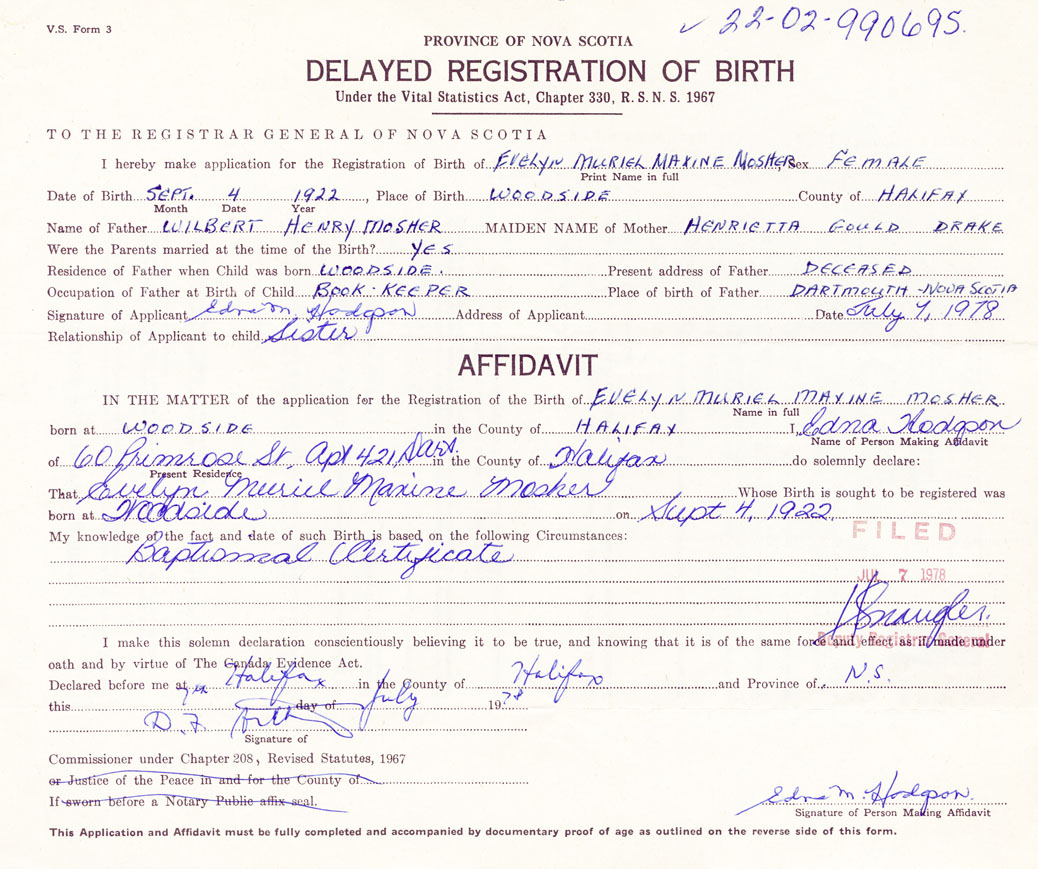 V.S. Form 3
✓ 22-02-990695.
PROVINCE OF NOVA SCOTIA
DELAYED REGISTRATION OF BIRTH
Under the Vital Statistics Act, Chapter 330, R.S.N.S. 1967
TO THE REGISTRAR GENERAL OF NOVA SCOTIA
I hereby make application for the Registration of Birth of EVELYN MURIEL MAXINE MOSHER Sex FEMALE
Print Name in full
Date of Birth SEPT. 4 1922, Place of Birth WOODSIDE County of HALIFAX
Month Date Year
Name of Father WILBERT HENRY MOSHER MAIDEN NAME of Mother HENRIETTA GOULD DRAKE
Were the Parents married at the time of the Birth? YES
Residence of Father when Child was born WOODSIDE. Present address of Father DECEASED
Occupation of Father at Birth of Child BOOK-KEEPER Place of birth of Father DARTMOUTH - NOVA SCOTIA
Signature of Applicant Edna M. Hodgson Address of Applicant Date July 7, 1978
Relationship of Applicant to child Sister
AFFIDAVIT
IN THE MATTER of the application for the Registration of the Birth of EVELYN MURIEL MAXINE MOSHER
Name in full
born at WOODSIDE in the County of HALIFAX I, Edna Hodgson
Name of Person Making Affidavit
of 60 Primrose St, Apt 421, Dart. in the County of Halifax do solemnly declare:
Present Residence
That Evelyn Muriel Maxine Mosher Whose Birth is sought to be registered was
born at Woodside on Sept 4, 1922.
My knowledge of the fact and date of such Birth is based on the following Circumstances:
FILED
Baptismal Certificate
JUL 7 1978
I make this solemn declaration conscientiously believing it to be true, and knowing that it is of the same force and effect as if made under
Deputy Registrar General
oath and by virtue of The Canada Evidence Act.
Declared before me at Halifax in the County of Halifax and Province of N.S.
this 7th day of July 1978
D. F.
Signature of
Commissioner under Chapter 208, Revised Statutes, 1967
or Justice of the Peace in and for the County of
If sworn before a Notary Public affix seal.
Edna M. Hodgson.
Signature of Person Making Affidavit
This Application and Affidavit must be fully completed and accompanied by documentary proof of age as outlined on the reverse side of this form.